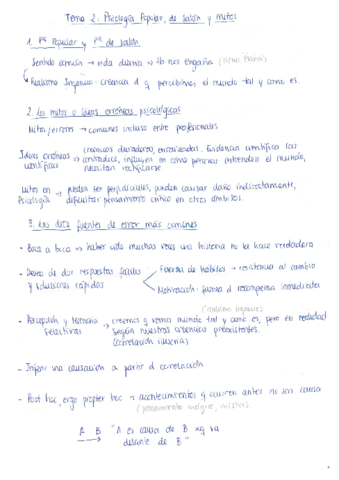 Tema 2: Psicología Popular, de salón y mitos
1. Pª Popular y Pª de salón.
Sentido común → vida diaria → tb nos engaña
↳ Realismo Ingenuo: creencia d q percibimos el mundo tal y como es.
2. Los mitos o ideas erróneas psicológicas
Mitos/errores → comunes incluso entre profesionales
Ideas erróneas → creencias duraderas, enraizadas. Evidencia científica las
científicas contradice, influyen en cómo personas entienden el mundo,
necesitan rectificarse.
Mitos en → pueden ser perjudiciales, pueden causar daño indirectamente,
Psicología dificultar pensamiento crítico en otros ámbitos.
3. Las diez fuentes de error más comunes
- Boca a boca → haber oído muchas veces una historia no la hace verdadera
- Deseo de dar respuestas fáciles Fuerza de hábitos → resistencia al cambio
y soluciones rápidas Motivación: fuerza d recompensa inmediata
(realismo ingenuo)
- Percepción y Memoria → creemos q vemos mundo tal y como es, pero en realidad
selectivas según nuestras creencias preexistentes.
(correlación ilusoria)
- Inferir una causación a partir d correlación
- Post hoc, ergo propter hoc → acontecimientos q ocurren antes no son causa
(pensamiento mágico,
A B "A es causa de B xq va
→ delante de B"